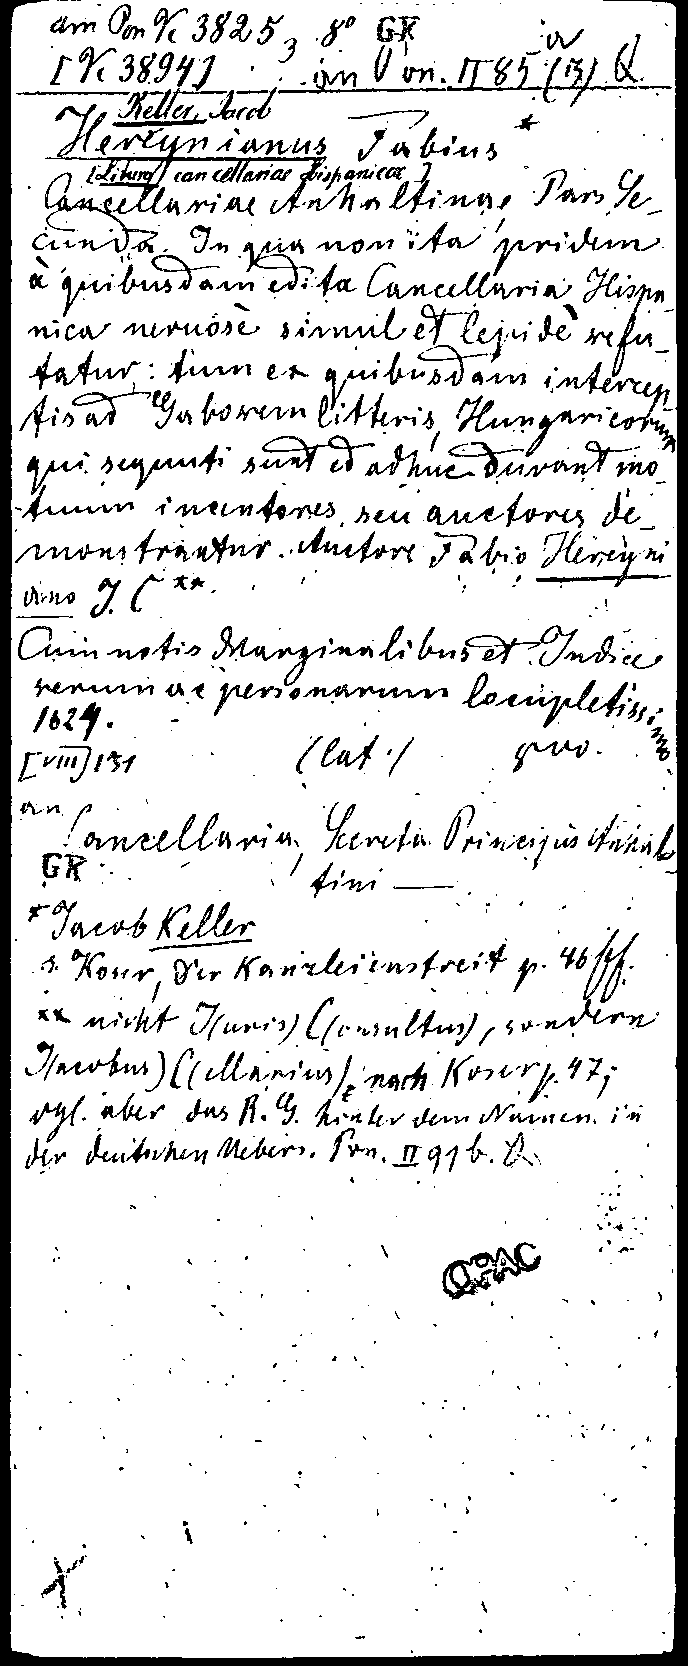 an Pon Vc 3825, 8° GK
3 a
[Vc 3894] an Pon. II 85 (13) Q
Keller, Jacob
Hercynianus Fabius *
[Liturа] cancellariae Hispanicae]
Cancellariae Anhaltinae Pars Se-
cunda. In qua non ita pridem
à quibusdam edita Cancellaria Hispa-
nica nervosè simul et lepidè refu-
tatur: tum ex quibusdam intercep
tis ad Gaborem litteris, Hungaricorum
qui sequuti sunt et adhuc durant mo-
tuum incentores, seu auctores de-
monstrantur. Auctore Fabio Hercyni
ano J. C **.
Cum notis Marginalibus et Indice
rerum ac personarum locupletissimo.
1624.
[VIII] 131 (lat.) 8vo.
an
Cancellaria, Secreta Principis Anhal-
GK
tini —
* Jacob Keller
s. Koser, Der Kanzleienstreit p. 46 ff.
** nicht J(uris) C(onsultus), sondern
J(acobus) C(ellarius), nach Koser p. 47;
vgl. aber das R. G. hinter dem Namen in
der deutschen Uebers. Pon. II 91 b. Q
OPAC